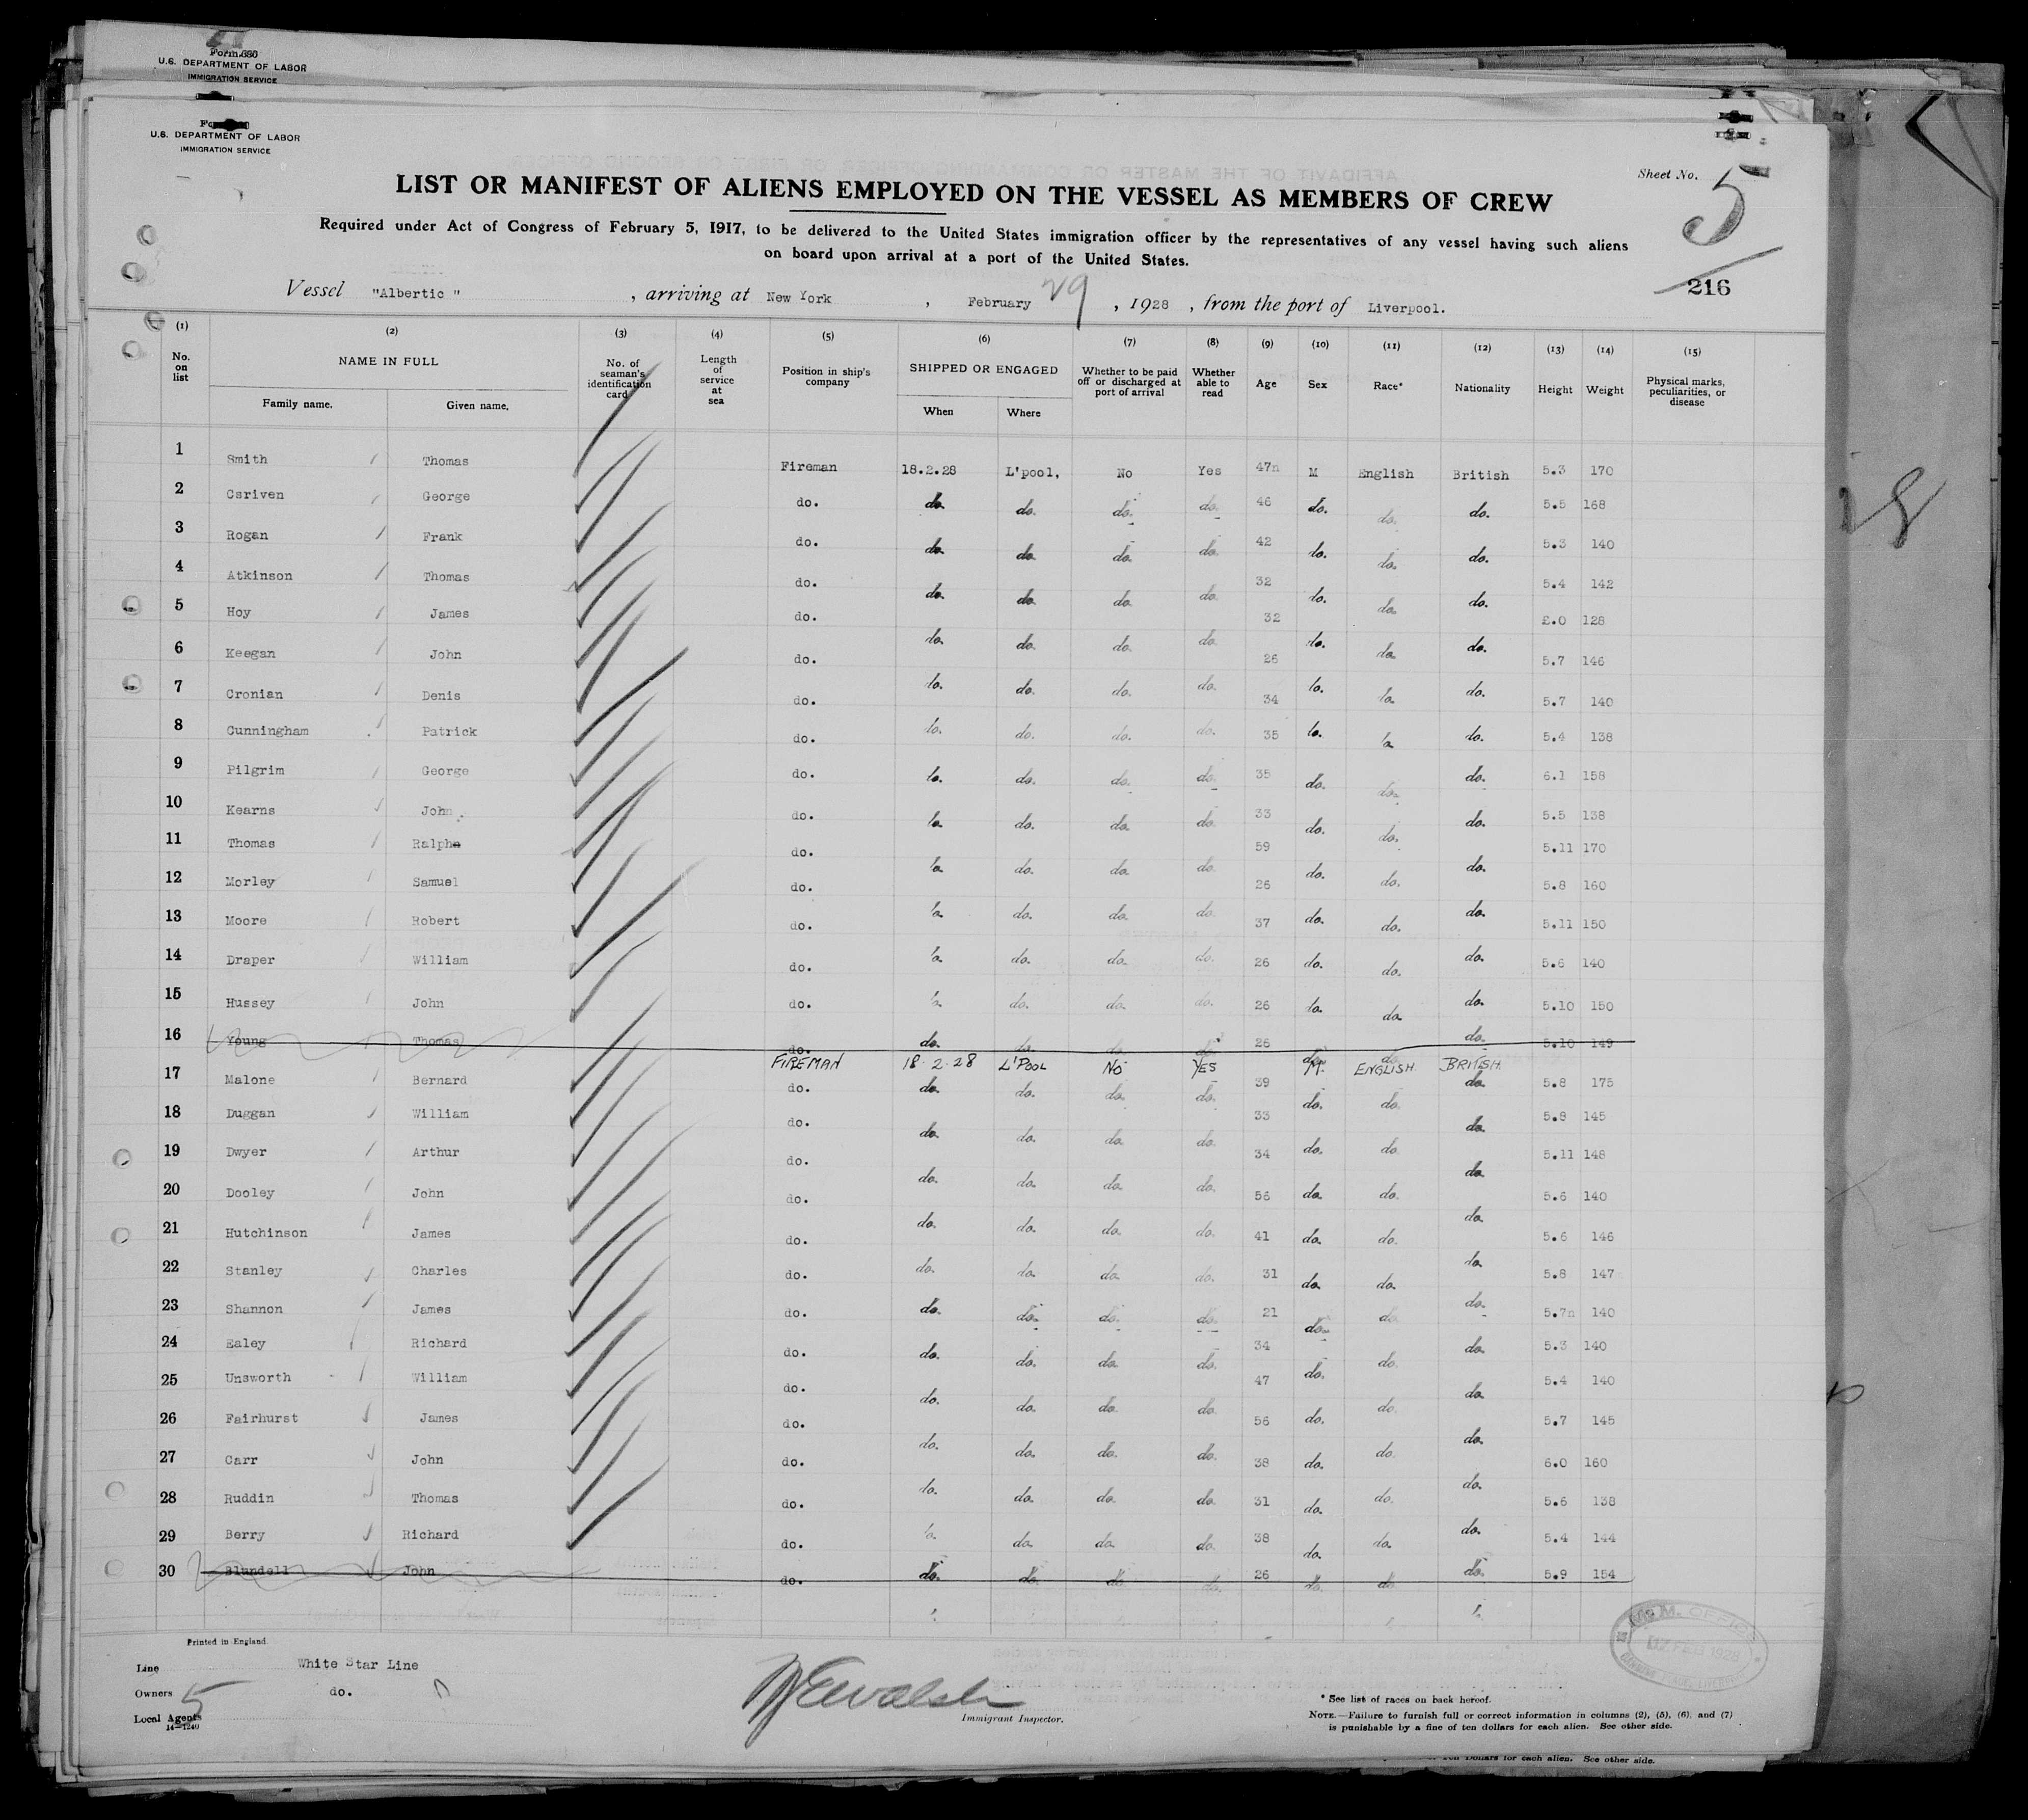 Form 686
U.S. DEPARTMENT OF LABOR
IMMIGRATION SERVICE
U.S. DEPARTMENT OF LABOR
IMMIGRATION SERVICE
Sheet No. 5
LIST OR MANIFEST OF ALIENS EMPLOYED ON THE VESSEL AS MEMBERS OF CREW
Required under Act of Congress of February 5, 1917, to be delivered to the United States immigration officer by the representatives of any vessel having such aliens
on board upon arrival at a port of the United States.
216
Vessel "Albertic", arriving at New York, February 29, 1928, from the port of Liverpool.
(1) (2) (3) (4) (5) (6) (7) (8) (9) (10) (11) (12) (13) (14) (15)
No. on list NAME IN FULL No. of seaman's identification card Length of service at sea Position in ship's company SHIPPED OR ENGAGED Whether to be paid off or discharged at port of arrival Whether able to read Age Sex Race* Nationality Height Weight Physical marks, peculiarities, or disease
Family name. Given name. When Where
1 Smith Thomas Fireman 18.2.28 L'pool, No Yes 47n M English British 5.3 170
2 Csriven George do. do. do. do. do. 46 do. do. do. 5.5 168
3 Rogan Frank do. do. do. do. do. 42 do. do. do. 5.3 140
4 Atkinson Thomas do. do. do. do. do. 32 do. do. do. 5.4 142
5 Hoy James do. do. do. do. do. 32 do. do. do. £.0 128
6 Keegan John do. do. do. do. do. 26 do. do. do. 5.7 146
7 Cronian Denis do. do. do. do. do. 34 do. do. do. 5.7 140
8 Cunningham Patrick do. do. do. do. do. 35 do. do. do. 5.4 138
9 Pilgrim George do. do. do. do. do. 35 do. do. do. 6.1 158
10 Kearns John do. do. do. do. do. 33 do. do. do. 5.5 138
11 Thomas Ralph do. do. do. do. do. 59 do. do. do. 5.11 170
12 Morley Samuel do. do. do. do. do. 26 do. do. do. 5.8 160
13 Moore Robert do. do. do. do. do. 37 do. do. do. 5.11 150
14 Draper William do. do. do. do. do. 26 do. do. do. 5.6 140
15 Hussey John do. do. do. do. do. 26 do. do. do. 5.10 150
16 Young Thomas do. do. do. do. do. 26 do. do. do. 5.10 149
FIREMAN 18-2-28 L'POOL NO YES M. ENGLISH BRITISH
17 Malone Bernard do. do. do. do. do. 39 do. do. do. 5.8 175
18 Duggan William do. do. do. do. do. 33 do. do. do. 5.8 145
19 Dwyer Arthur do. do. do. do. do. 34 do. do. do. 5.11 148
20 Dooley John do. do. do. do. do. 56 do. do. do. 5.6 140
21 Hutchinson James do. do. do. do. do. 41 do. do. do. 5.6 146
22 Stanley Charles do. do. do. do. do. 31 do. do. do. 5.8 147
23 Shannon James do. do. do. do. do. 21 do. do. do. 5.7n 140
24 Ealey Richard do. do. do. do. do. 34 do. do. do. 5.3 140
25 Unsworth William do. do. do. do. do. 47 do. do. do. 5.4 140
26 Fairhurst James do. do. do. do. do. 56 do. do. do. 5.7 145
27 Carr John do. do. do. do. do. 38 do. do. do. 6.0 160
28 Ruddin Thomas do. do. do. do. do. 31 do. do. do. 5.6 138
29 Berry Richard do. do. do. do. do. 38 do. do. do. 5.4 144
30 Blundell John do. do. do. do. do. 26 do. do. do. 5.9 154
Printed in England
Line White Star Line
Owners do.
5
Local Agents
14—1240
Immigrant Inspector.
* See list of races on back hereof.
NOTE.—Failure to furnish full or correct information in columns (2), (5), (6), and (7)
is punishable by a fine of ten dollars for each alien. See other side.
dollars for each alien. See other side.